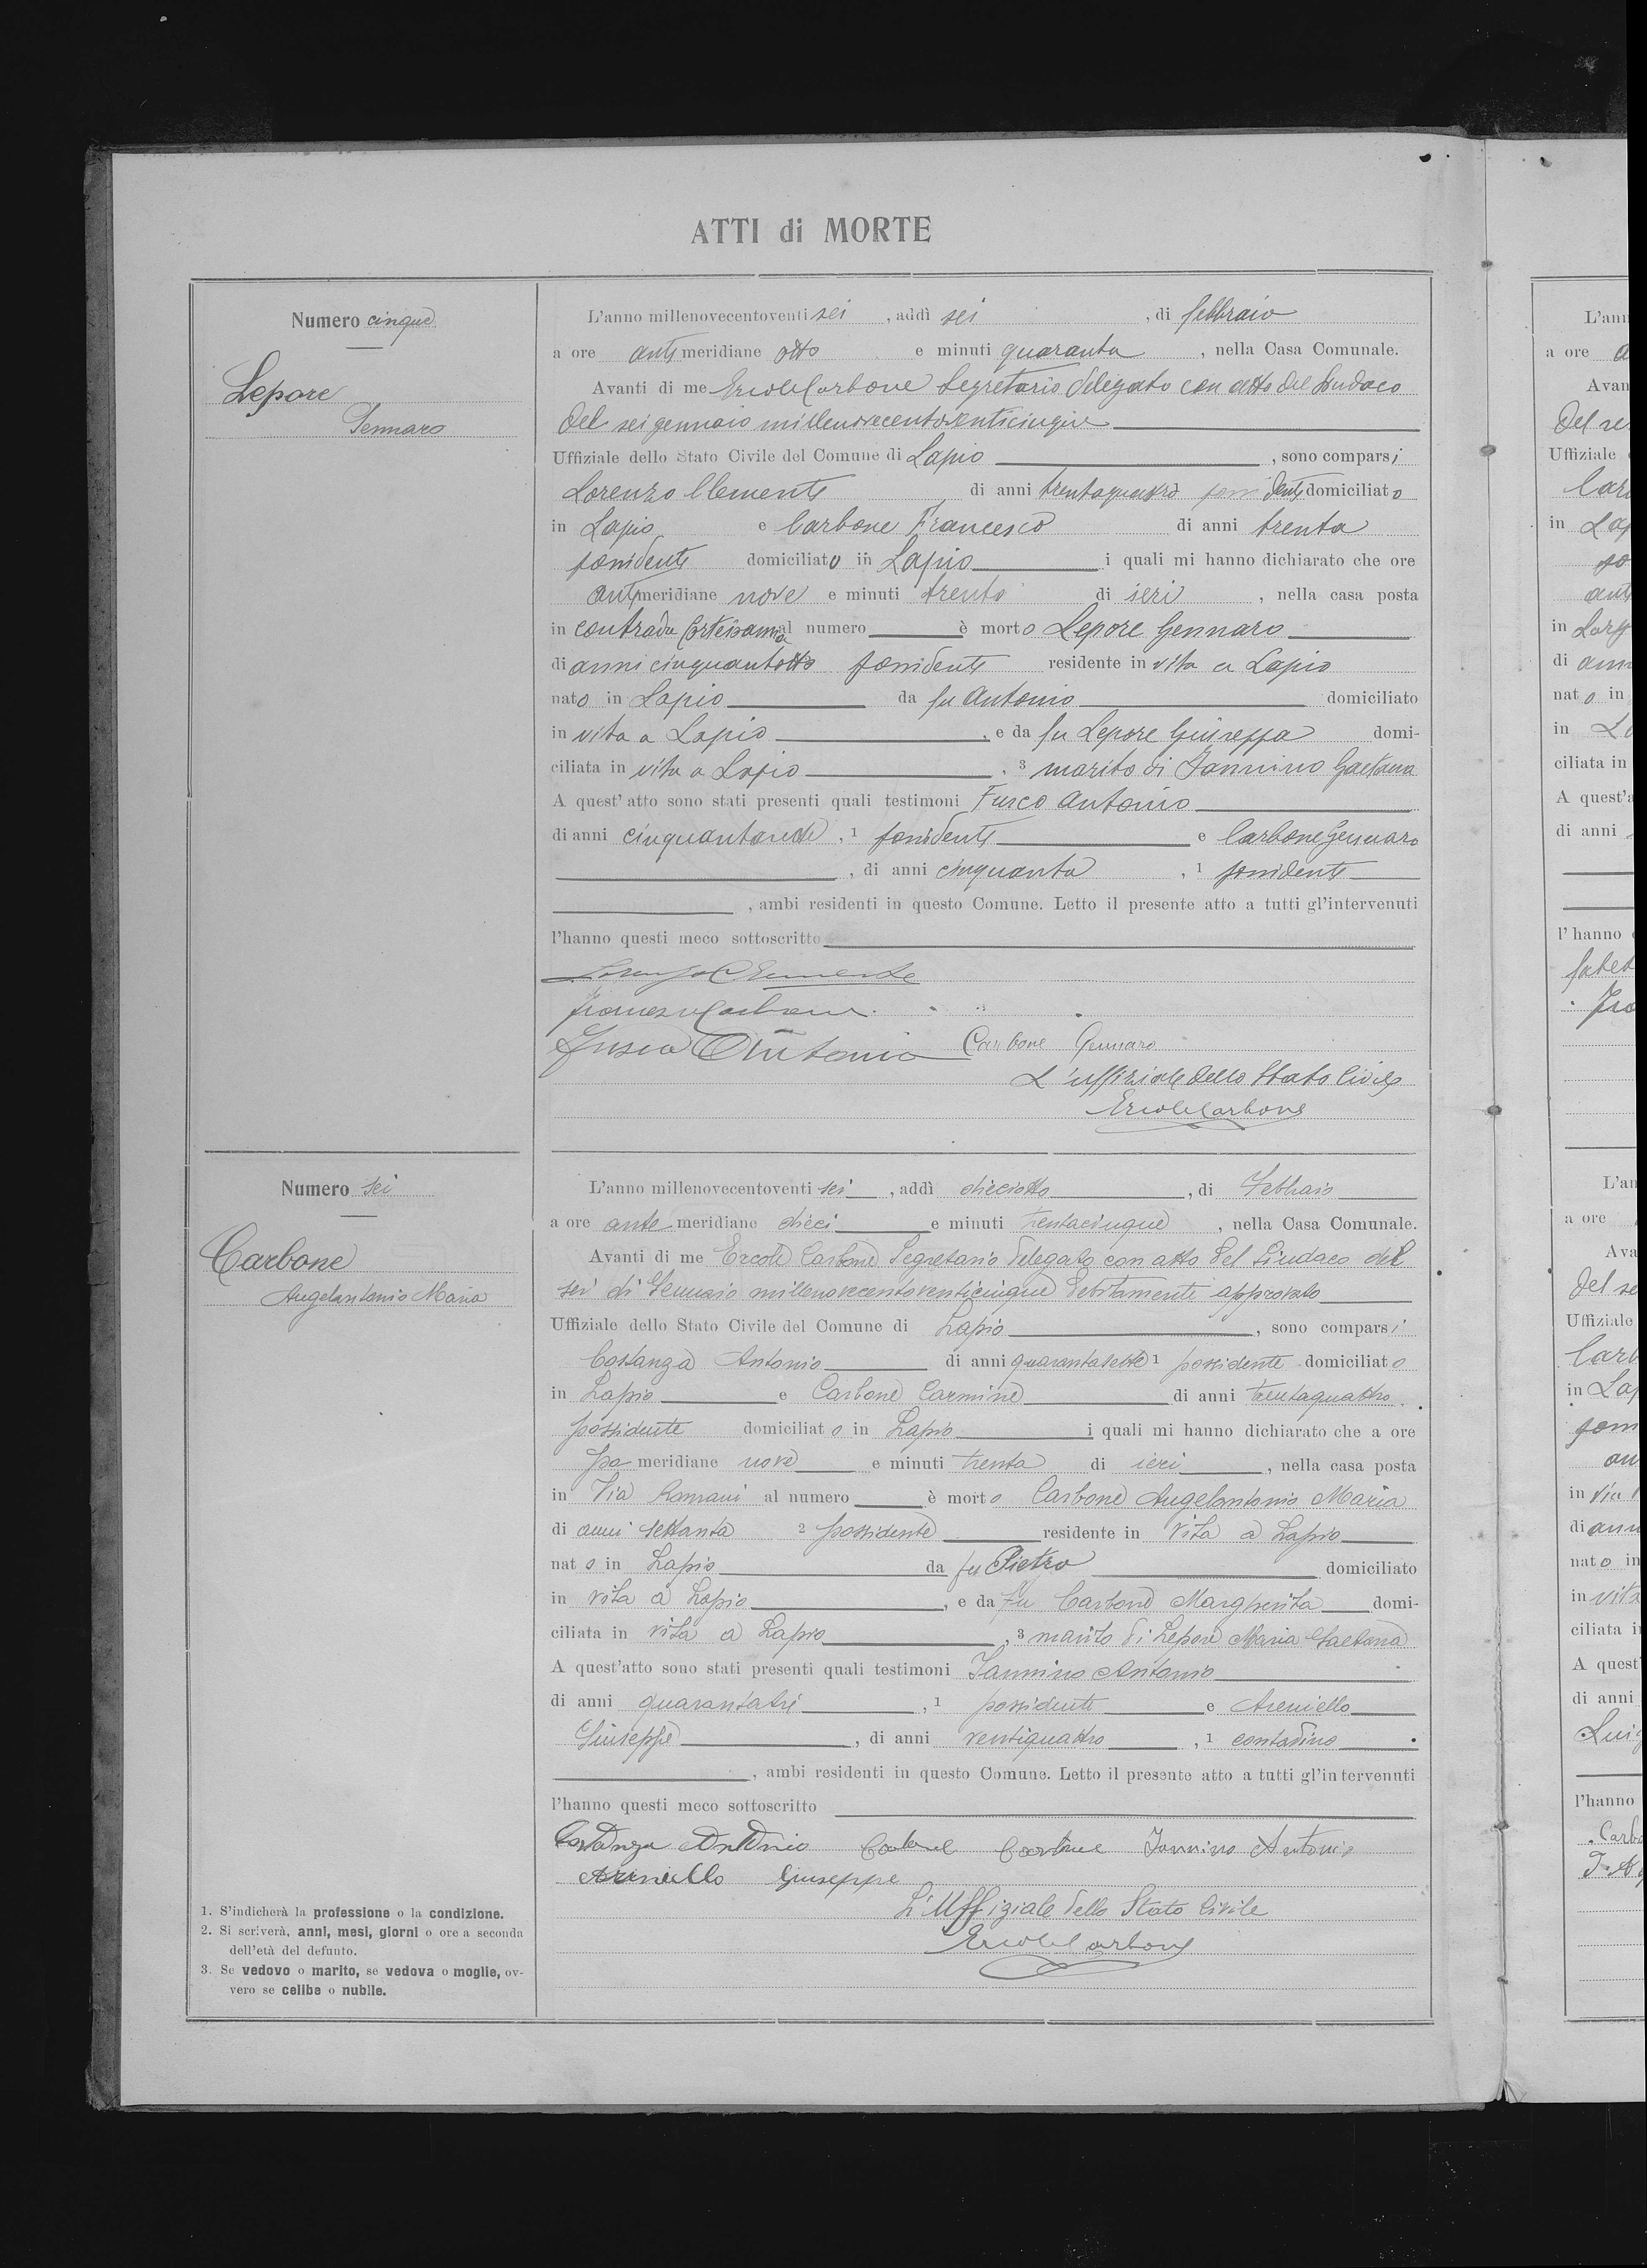 ATTI di MORTE
Numero cinque
Lepore
Gennaro
L'anno millenovecentoventi sei , addì sei , di febbraio
a ore anti meridiane otto e minuti quaranta , nella Casa Comunale.
Avanti di me Ercole Carbone Segretario delegato con atto del Sindaco
del sei gennaio millenovecentoventicinque
Uffiziale dello Stato Civile del Comune di Lapio , sono comparsi
Lorenzo Clemente di anni trentaquattro possidente domiciliato
in Lapio e Carbone Francesco di anni trenta
possidente domiciliato in Lapio i quali mi hanno dichiarato che ore
anti meridiane nove e minuti trenta di ieri , nella casa posta
in contrada al numero è morto Lepore Gennaro
di anni cinquantotto possidente residente in vita a Lapio
nato in Lapio da fu Antonio domiciliato
in vita a Lapio , e da fu Lepore Giuseppa domi-
ciliata in vita a Lapio , 3 marito di Iannino Gaetana
A quest'atto sono stati presenti quali testimoni Fusco Antonio
di anni , 1 possidente e Carbone Gennaro
, di anni cinquanta , 1 possidente
, ambi residenti in questo Comune. Letto il presente atto a tutti gl'intervenuti
l'hanno questi meco sottoscritto
Lorenzo Clemente
Francesco Carbone
Fusco Antonio Carbone Gennaro
L'uffiziale dello Stato Civile
Ercole Carbone
Numero sei
Carbone
Angelantonio Maria
L'anno millenovecentoventi sei , addì dieciotto , di Febbraio
a ore ante meridiane dieci e minuti trentacinque , nella Casa Comunale.
Avanti di me Ercole Carbone Segretario delegato con atto del Sindaco del
sei di Gennaio millenovecentoventicinque debitamente approvato
Uffiziale dello Stato Civile del Comune di Lapio , sono comparsi
Costanza Antonio di anni quarantasette 1 possidente domiciliato
in Lapio e Carbone Carmine di anni trentaquattro
possidente domiciliato in Lapio i quali mi hanno dichiarato che a ore
po meridiane nove e minuti trenta di ieri , nella casa posta
in Via Romani al numero è morto Carbone Angelantonio Maria
di anni settanta 2 possidente residente in vita a Lapio
nato in Lapio da fu Pietro domiciliato
in vita a Lapio , e da fu Carbone Margherita domi-
ciliata in vita a Lapio , 3 marito di Lepore Maria Gaetana
A quest'atto sono stati presenti quali testimoni Iannino Antonio
di anni quarantatre , 1 possidente e Areniello
Giuseppe , di anni ventiquattro , 1 contadino
, ambi residenti in questo Comune. Letto il presente atto a tutti gl'intervenuti
l'hanno questi meco sottoscritto
Costanza Antonio Carbone Iannino Antonio
Areniello Giuseppe
L'Uffiziale dello Stato Civile
Ercole Carbone
1. S'indicherà la professione o la condizione.
2. Si scriverà, anni, mesi, giorni o ore a seconda
dell'età del defunto.
3. Se vedovo o marito, se vedova o moglie, ov-
vero se celibe o nubile.